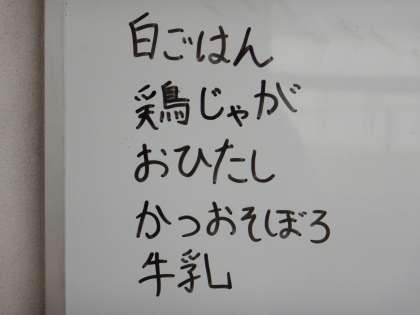 白ごはん
鶏じゃが
おひたし
かつおそぼろ
牛乳